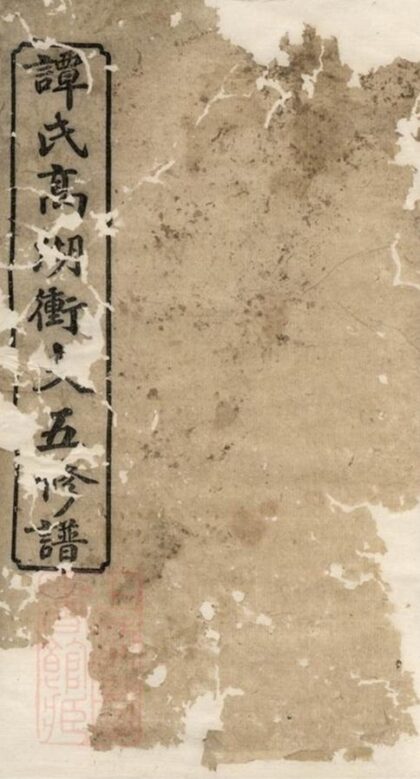 譚氏高湖衝五修譜